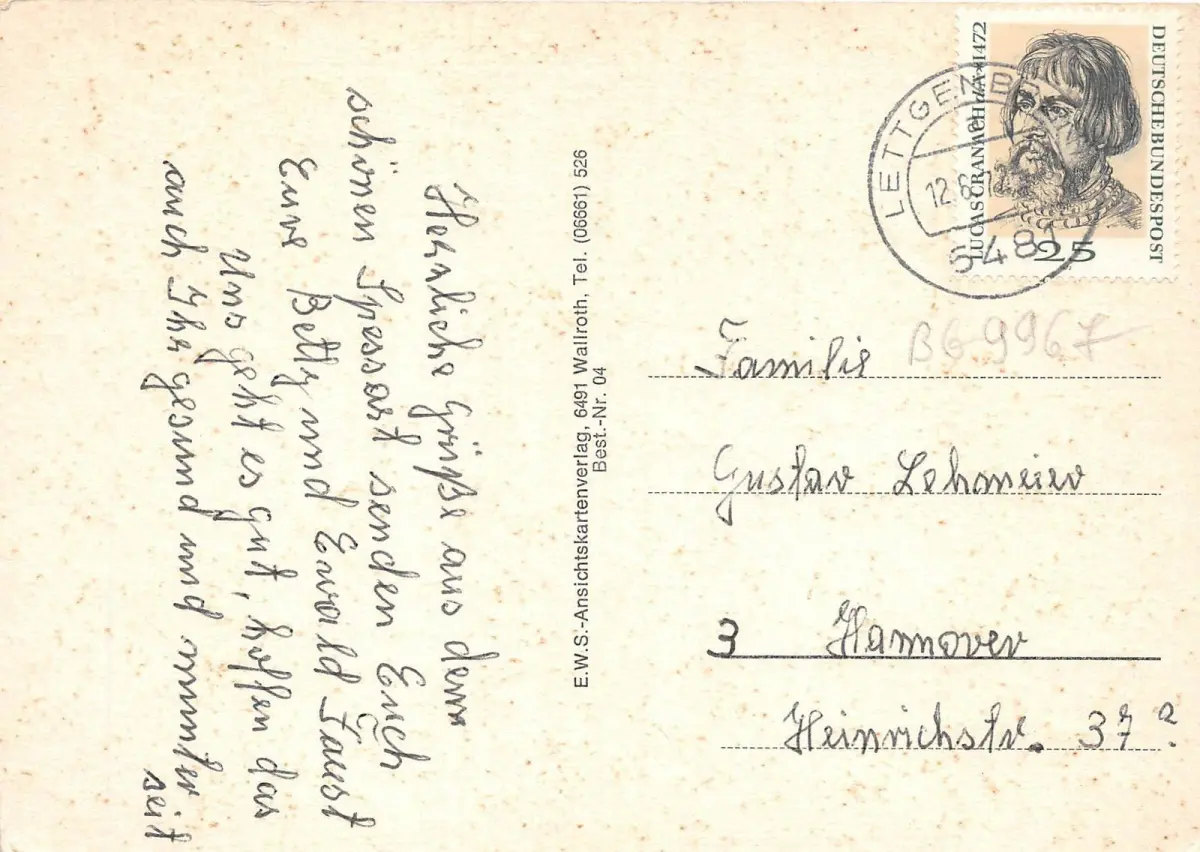 Herzliche Grüße aus dem
schönen Spessart senden Euch
Eure Betty und Ewald Faust
Uns geht es gut, hoffen das
auch Ihr gesund und munter
seit
E.W.S.-Ansichtskartenverlag, 6491 Wallroth, Tel. (06661) 526
Best.-Nr. 04
DEUTSCHE BUNDESPOST
LUCAS CRANACH d.Ä * 1472
25
LETTGENB
a
12.6.72
6481
BG 9967
Familie
Gustav Lehmeier
3 Hannover
Heinrichstr. 37?